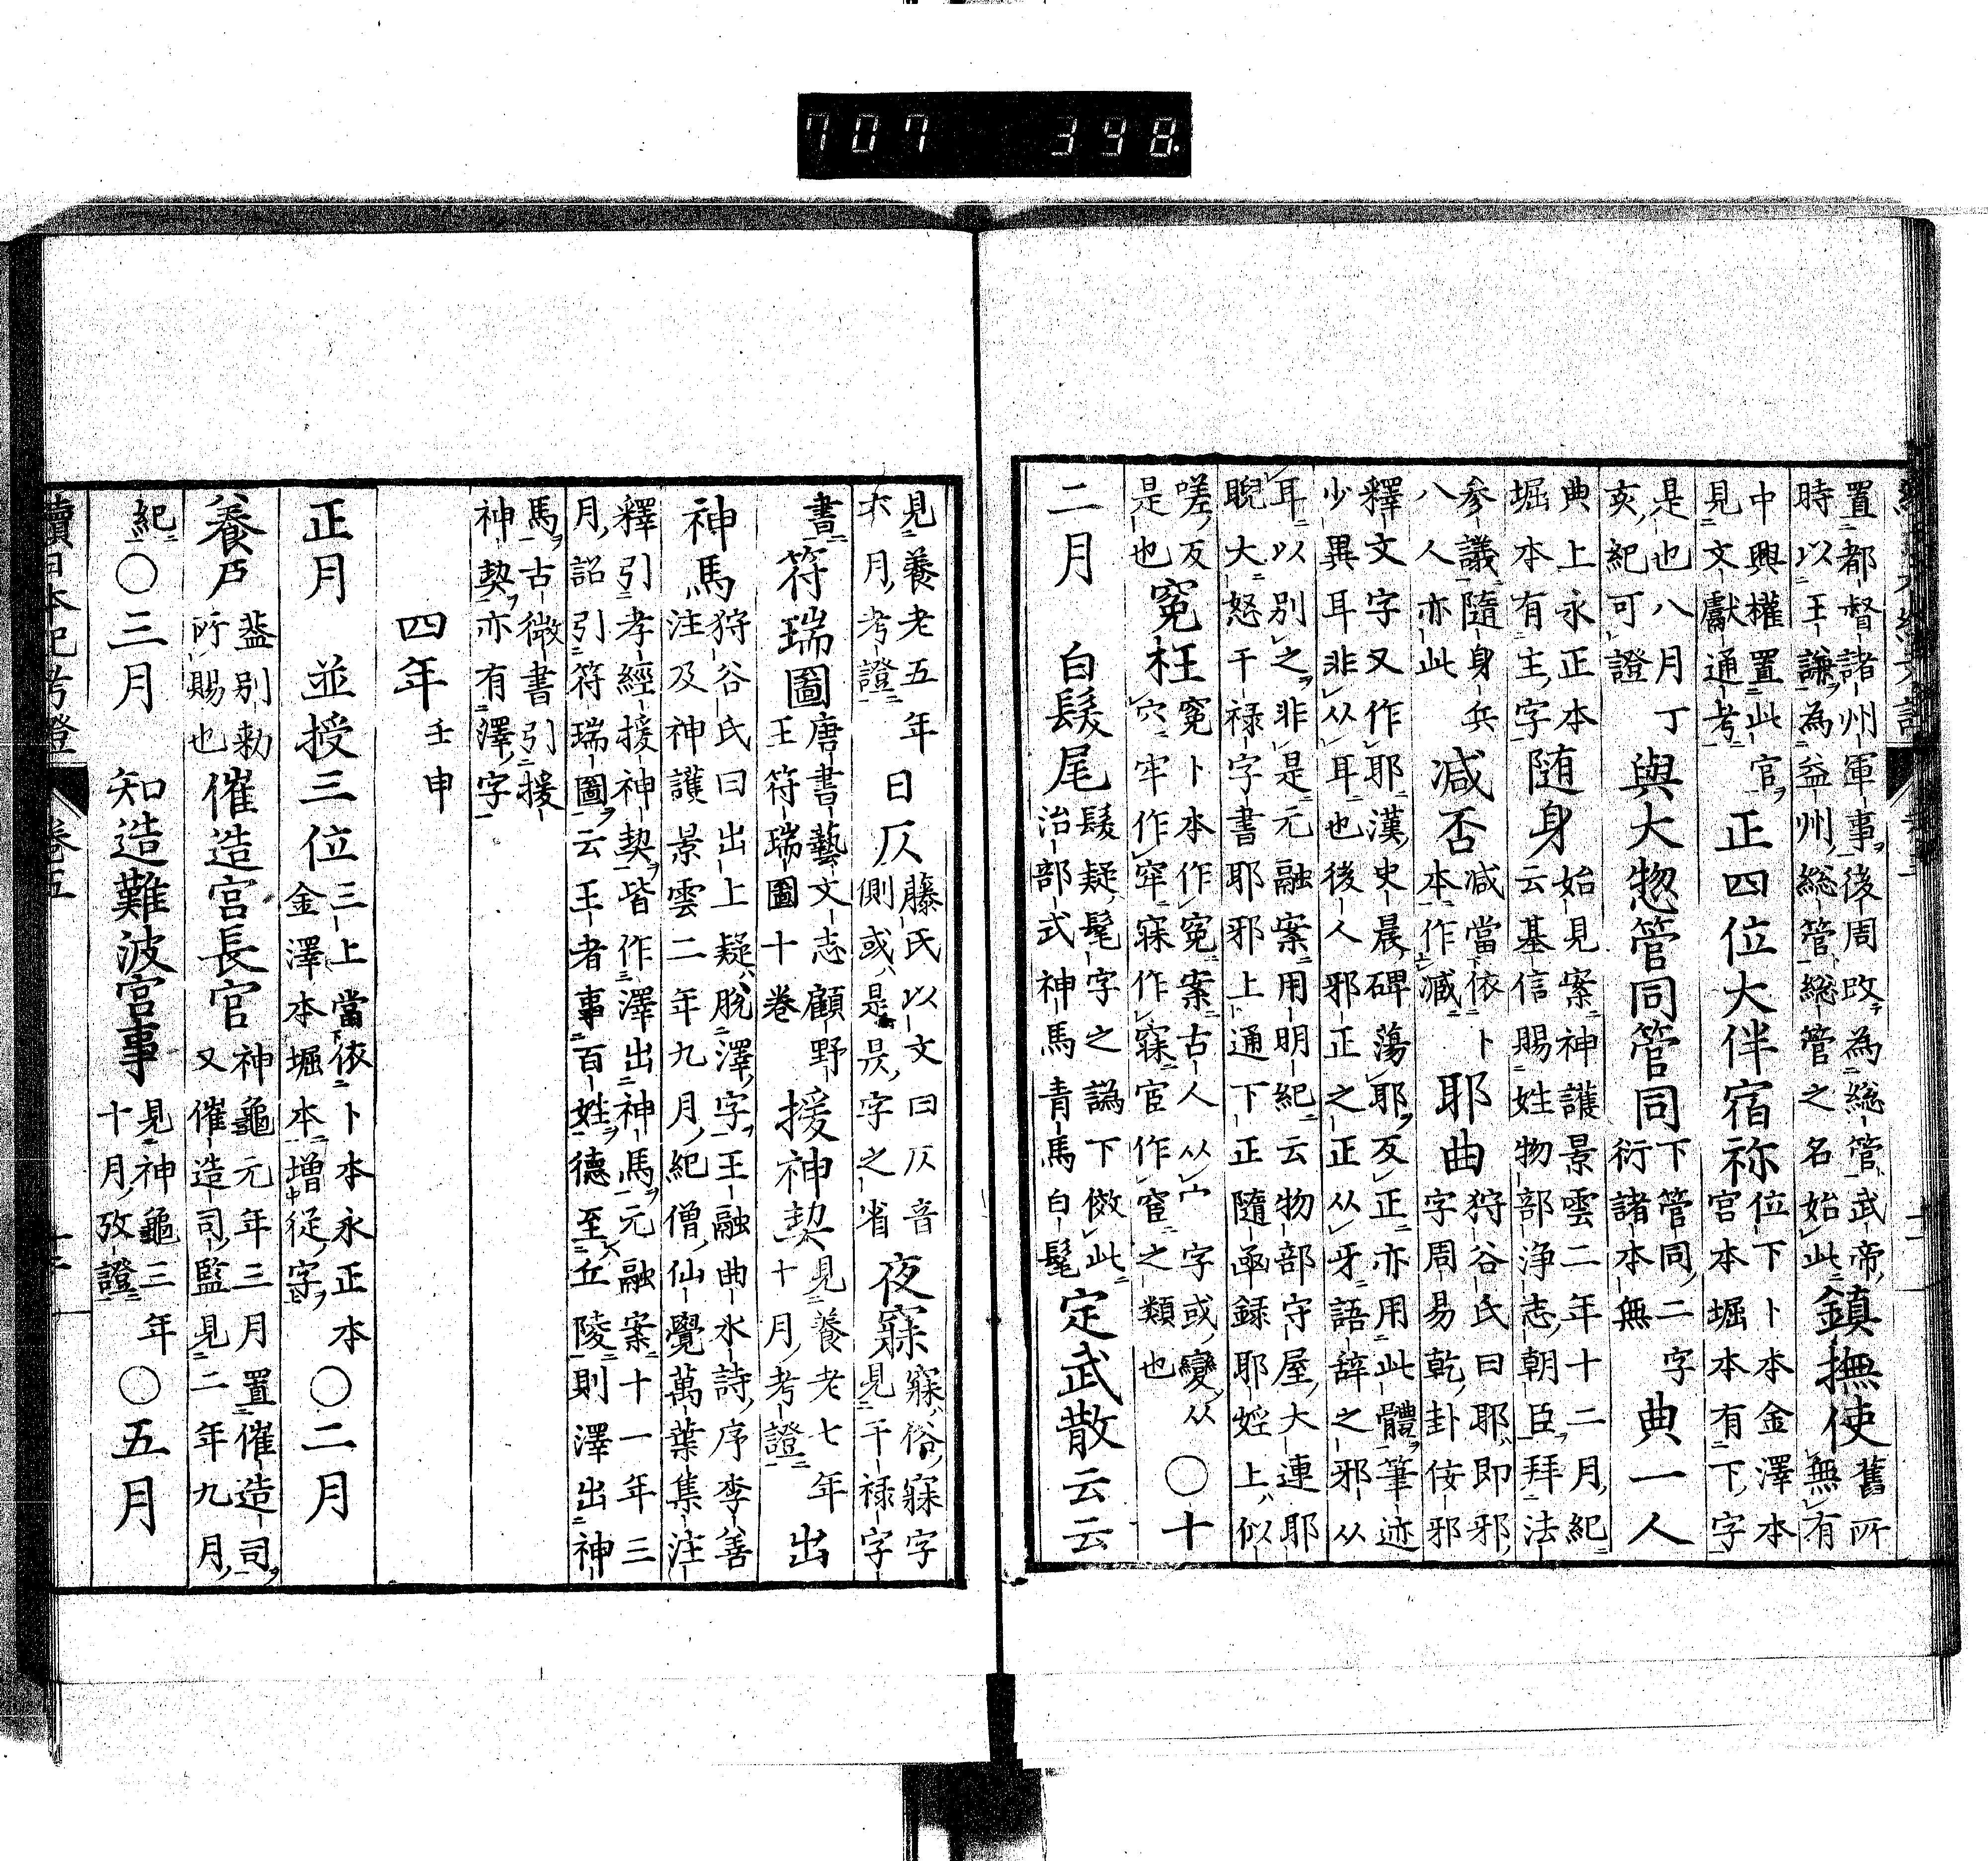 707 398.
置都督諸州軍事後周改為総管武帝
時以王謙為益州総管総管之名始此
鎮撫使
舊所
無有
中興權置此官
見文獻通考
正四位大伴宿祢
位下卜本金澤本
宮本堀本有下字
是也八月丁
亥紀可證
與大惣管同管同
下管同二字
衍諸本無
典一人
典上永正本
堀本有主字
随身
始見案神護景雲二年十二月紀
云基信賜姓物部浄志朝臣拜法
参議隨身兵
八人亦此
減否
減當依卜
本作臧
耶曲
狩谷氏曰耶即邪
字周易乾卦侫邪
釋文字又作耶漢史晨碑蕩耶反正亦用此體筆迹
少異耳非从耳也後人邪正之正从牙語辞之邪从
耳以別之非是元融案用明紀云物部守屋大連耶
睨大怒干禄字書耶邪上通下正隨函録耶婬上似
嗟反
是也
寃枉
寃卜本作寃案古人从宀字或變从
穴牢作窂寐作寱宦作窅之類也
〇十
二月
白髮尾
髮疑髦字之譌下倣此
治部式神馬青馬白髦
定武散云云
見養老五年
六月考證
日仄
藤氏以文曰仄音
側或是昃字之省
夜寐
寐俗寐字
見干禄字
書
符瑞圖
唐書藝文志顧野
王符瑞圖十卷
援神契
見養老七年
十月考證
出
神馬
狩谷氏曰出上疑脱澤字王融曲水詩序李善
注及神護景雲二年九月紀僧仙覺萬葉集注
釋引孝經援神契皆作澤出神馬元融案十一年三
月詔引符瑞圖云王者事百姓德至丘陵則澤出神
馬古微書引援
神契亦有澤字
四年 壬申
正月
並授三位
三上當依卜本永正本
金澤本堀本増従字
〇二月
養戸
葢別勅
所賜也
催造宮長官
神龜元年三月置催造司
又催造司監見二年九月
紀
〇三月
知造難波宮事
見神龜三年
十月攷證
〇五月
續日本紀考證
卷五